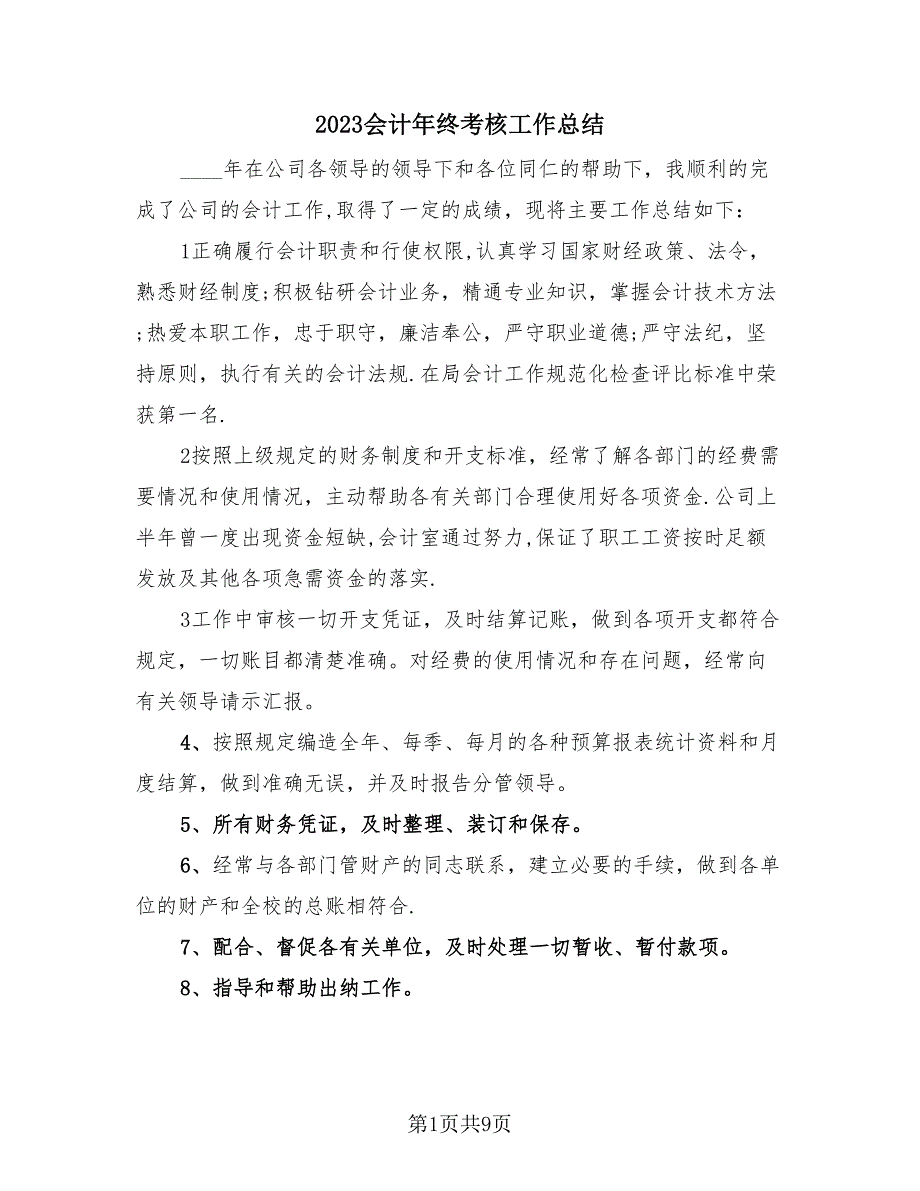 2023会计年终考核工作总结
____年在公司各领导的领导下和各位同仁的帮助下，我顺利的完
成了公司的会计工作,取得了一定的成绩，现将主要工作总结如下：
1正确履行会计职责和行使权限,认真学习国家财经政策、法令，
熟悉财经制度;积极钻研会计业务，精通专业知识，掌握会计技术方法
;热爱本职工作，忠于职守，廉洁奉公，严守职业道德;严守法纪，坚
持原则，执行有关的会计法规.在局会计工作规范化检查评比标准中荣
获第一名.
2按照上级规定的财务制度和开支标准，经常了解各部门的经费需
要情况和使用情况，主动帮助各有关部门合理使用好各项资金.公司上
半年曾一度出现资金短缺,会计室通过努力,保证了职工工资按时足额
发放及其他各项急需资金的落实.
3工作中审核一切开支凭证，及时结算记账，做到各项开支都符合
规定，一切账目都清楚准确。对经费的使用情况和存在问题，经常向
有关领导请示汇报。
4、按照规定编造全年、每季、每月的各种预算报表统计资料和月
度结算，做到准确无误，并及时报告分管领导。
5、所有财务凭证，及时整理、装订和保存。
6、经常与各部门管财产的同志联系，建立必要的手续，做到各单
位的财产和全校的总账相符合.
7、配合、督促各有关单位，及时处理一切暂收、暂付款项。
8、指导和帮助出纳工作。
第1页共9页